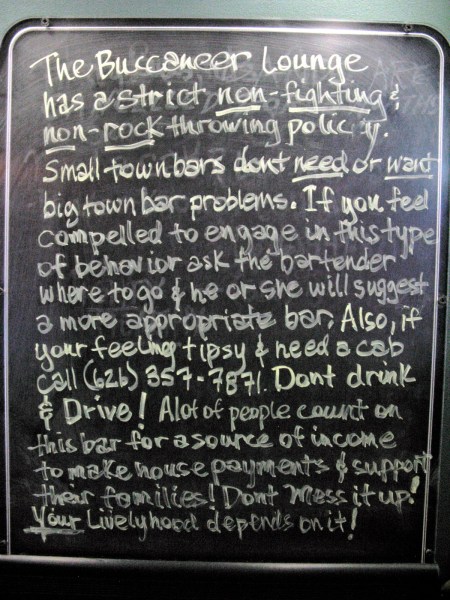 The Buccaneer Lounge
has a strict non-fighting &
non-rock throwing policy.
Small town bars dont need or want
big town bar problems. If you feel
compelled to engage in this type
of behavior ask the bartender
where to go & he or she will suggest
a more appropriate bar. Also, if
your feeling tipsy & need a cab
call (626) 357-7871. Dont drink
& Drive! Alot of people count on
this bar for a source of income
to make house payments & support
their families! Dont Mess it up!
Your Livelyhood depends on it!